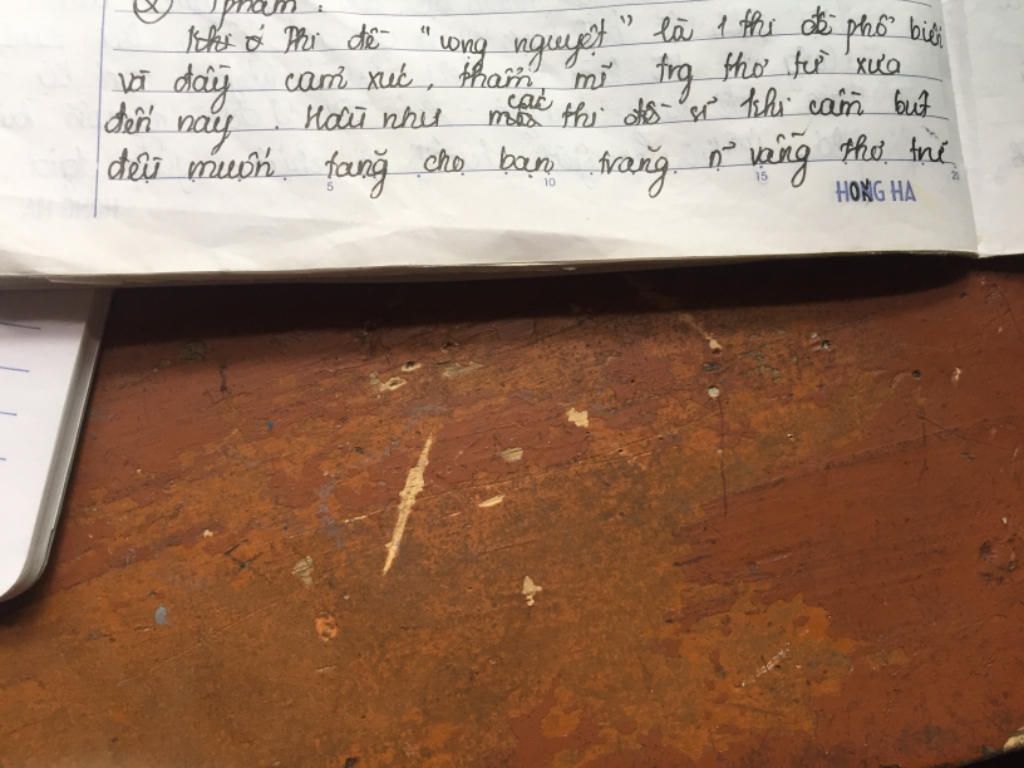 ② phẩm :
Khi ở Thi đề "vọng nguyệt" là 1 thi đề phổ biến
và đầy cảm xúc, thẩm mĩ trg thơ từ xưa
đến nay. Hầu như các thi sĩ khi cầm bút
đều muốn tặng cho bạn trăng n~ vầng thơ trữ
5 10 15 20
HONG HA